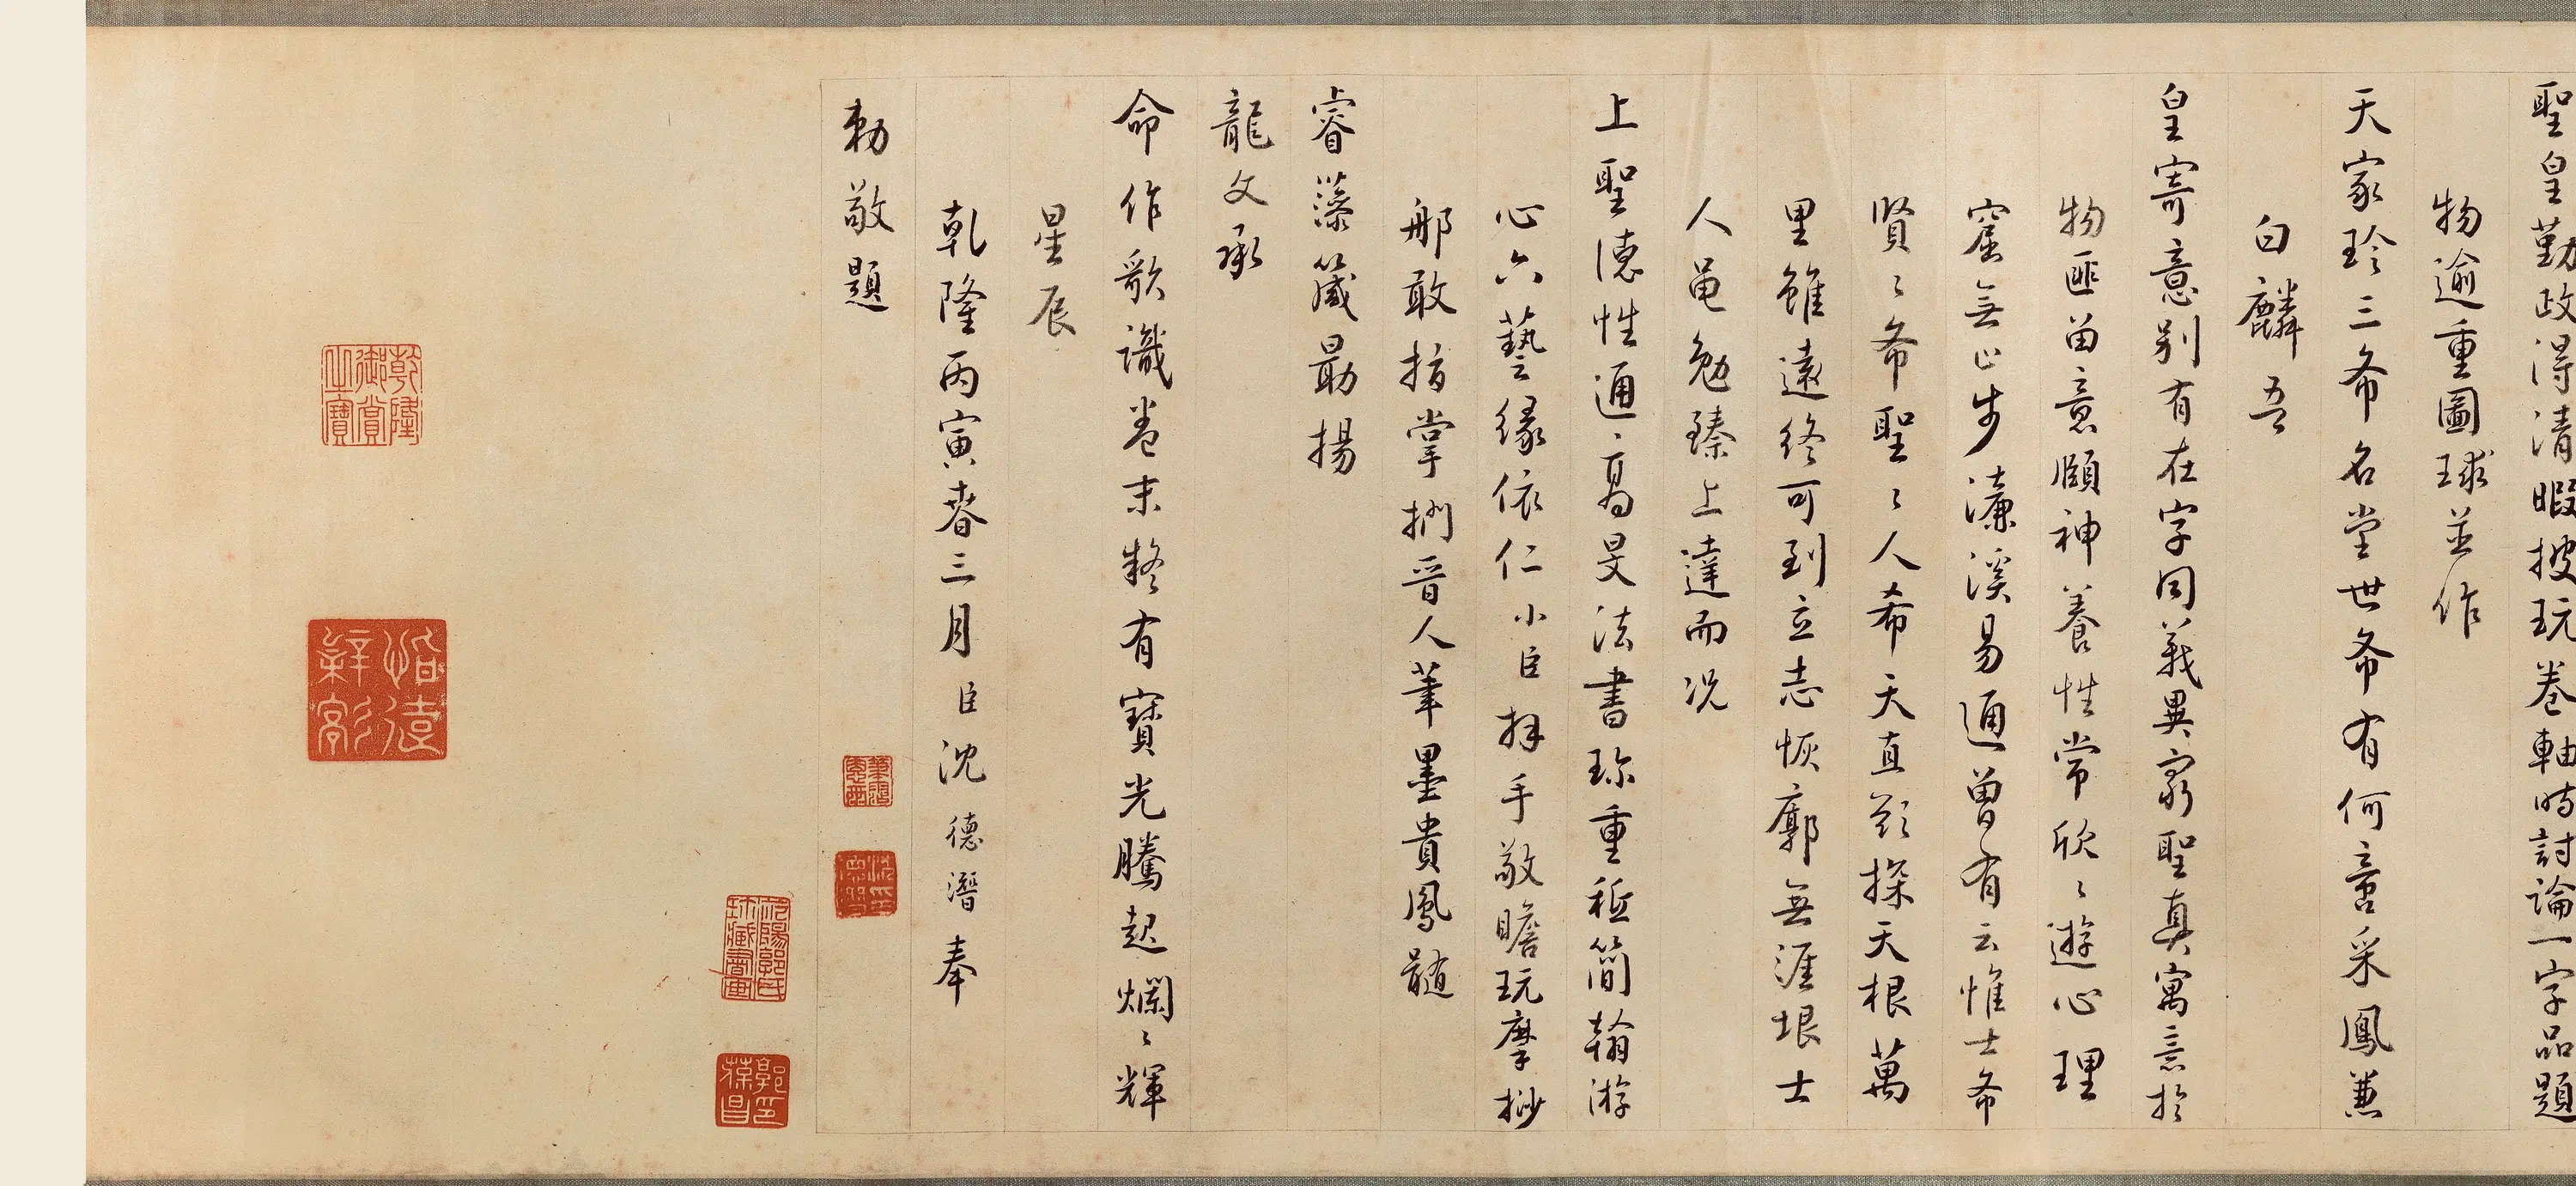 聖皇勤政得清暇披玩卷軸時討論一字品題
物逾重圖球並作
天家珍三希名堂世希有何啻采鳳兼
白麟吾
皇寄意別有在字同義異窮聖真寓意於
物匪留意頤神養性常欣〻遊心理
窟無止步濂溪易通曾有云惟士希
賢〻希聖〻人希天直欲探天根萬
里雖遠終可到立志恢廓無涯垠士
人黽勉臻上達而況
上聖德性通高旻法書珎重秪簡翰游
心六藝緣依仁小臣拜手敬瞻玩摩挱
那敢指掌捫晉人筆墨貴鳳髓
睿藻箴勗揚
龍文承
命作歌識卷末疑有寶光騰起爛〻輝
星辰
乾隆丙寅春三月臣沈德潛奉
勅敬題
乾隆御賞之寶
郭氏珍藏書畫
郭印葆昌